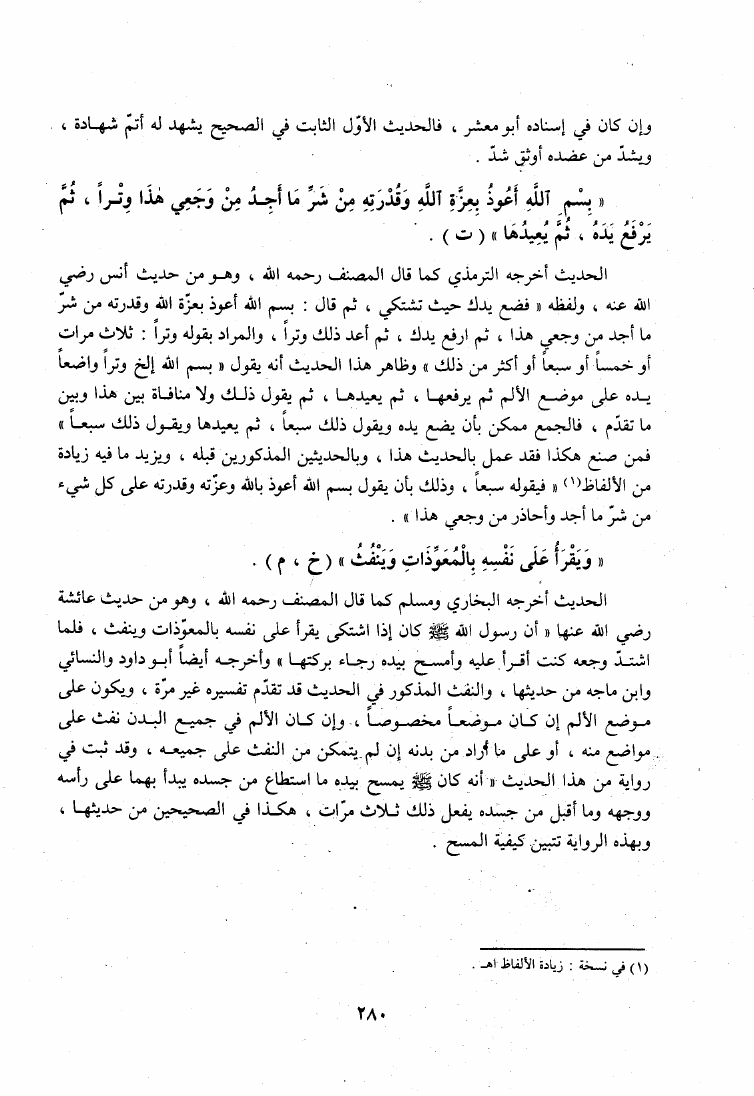 وإن كان في إسناده أبو معشر ، فالحديث الأوّل الثابت في الصحيح يشهد له أتمّ شهـادة ،
ويشدّ من عضده أوثق شدّ .
« بِسْمِ ٱللَّهِ أَعُوذُ بِعِزَّةِ اللَّهِ وَقُدْرَتِهِ مِنْ شَرِّ مَا أَجِـدُ مِنْ وَجَعِي هٰذَا وِتْـراً ، ثُمَّ
يَرْفَعُ يَدَهُ ، ثُمَّ يُعِيدُهَا » ( ت ) .
الحديث أخرجه الترمذي كما قال المصنف رحمه الله ، وهـو من حديث أنس رضي
الله عنه ، ولفظه « فضع يدك حيث تشتكي ، ثم قال : بسم الله أعوذ بعزّة الله وقدرته من شرّ
ما أجد من وجعي هذا ، ثم ارفع يدك ، ثم أعد ذلك وتراً ، والمراد بقوله وتراً : ثلاث مرات
أو خمساً أو سبعاً أو أكثر من ذلك » وظاهر هذا الحديث أنه يقول « بسم الله إلخ وتراً واضعاً
يـده على موضـع الألم ثم يرفعهـا ، ثم يعيدهـا ، ثم يقول ذلـك ولا منافـاة بين هذا وبين
ما تقدّم ، فالجمع ممكن بأن يضع يده ويقول ذلك سبعاً ، ثم يعيدها ويقـول ذلك سبعـاً »
فمن صنع هكذا فقد عمل بالحديث هذا ، وبالحديثين المذكورين قبله ، ويزيد ما فيه زيادة
من الألفاظ(١) « فيقوله سبعاً ، وذلك بأن يقول بسم الله أعوذ بالله وعزّته وقدرته على كل شيء
من شرّ ما أجد وأحاذر من وجعي هذا » .
« وَيَقْرَأُ عَلَى نَفْسِهِ بِالْمُعَوِّذَاتِ وَيَنْفُثُ » ( خ ، م ) .
الحديث أخرجه البخاري ومسلم كما قال المصنف رحمه الله ، وهو من حديث عائشة
رضي الله عنها « أن رسول الله ﷺ كان إذا اشتكى يقرأ على نفسه بالمعوّذات وينفث ، فلما
اشتـدّ وجعه كنت أقـرأ عليه وأمسـح بيده رجـاء بركتهـا » وأخرجـه أيضاً أبـو داود والنسائي
وابن ماجه من حديثها ، والنفث المذكور في الحديث قد تقدّم تفسيره غير مرّة ، ويكون على
مـوضع الألم إن كـان مـوضعـاً مخصـوصـاً ، وإن كـان الألم في جميـع البـدن نفث على
مواضع منه ، أو على ما أراد من بدنه إن لم يتمكن من النفث على جميعـه ، وقد ثبت في
رواية من هذا الحديث « أنه كان ﷺ يمسح بيده ما استطاع من جسده يبدأ بهما على رأسه
ووجهه وما أقبل من جسده يفعل ذلك ثـلاث مرّات ، هكـذا في الصحيحين من حديثهـا ،
وبهذه الرواية تتبين كيفية المسح .
(١) في نسخة : زيادة الألفاظ اهـ .
٢٨٠